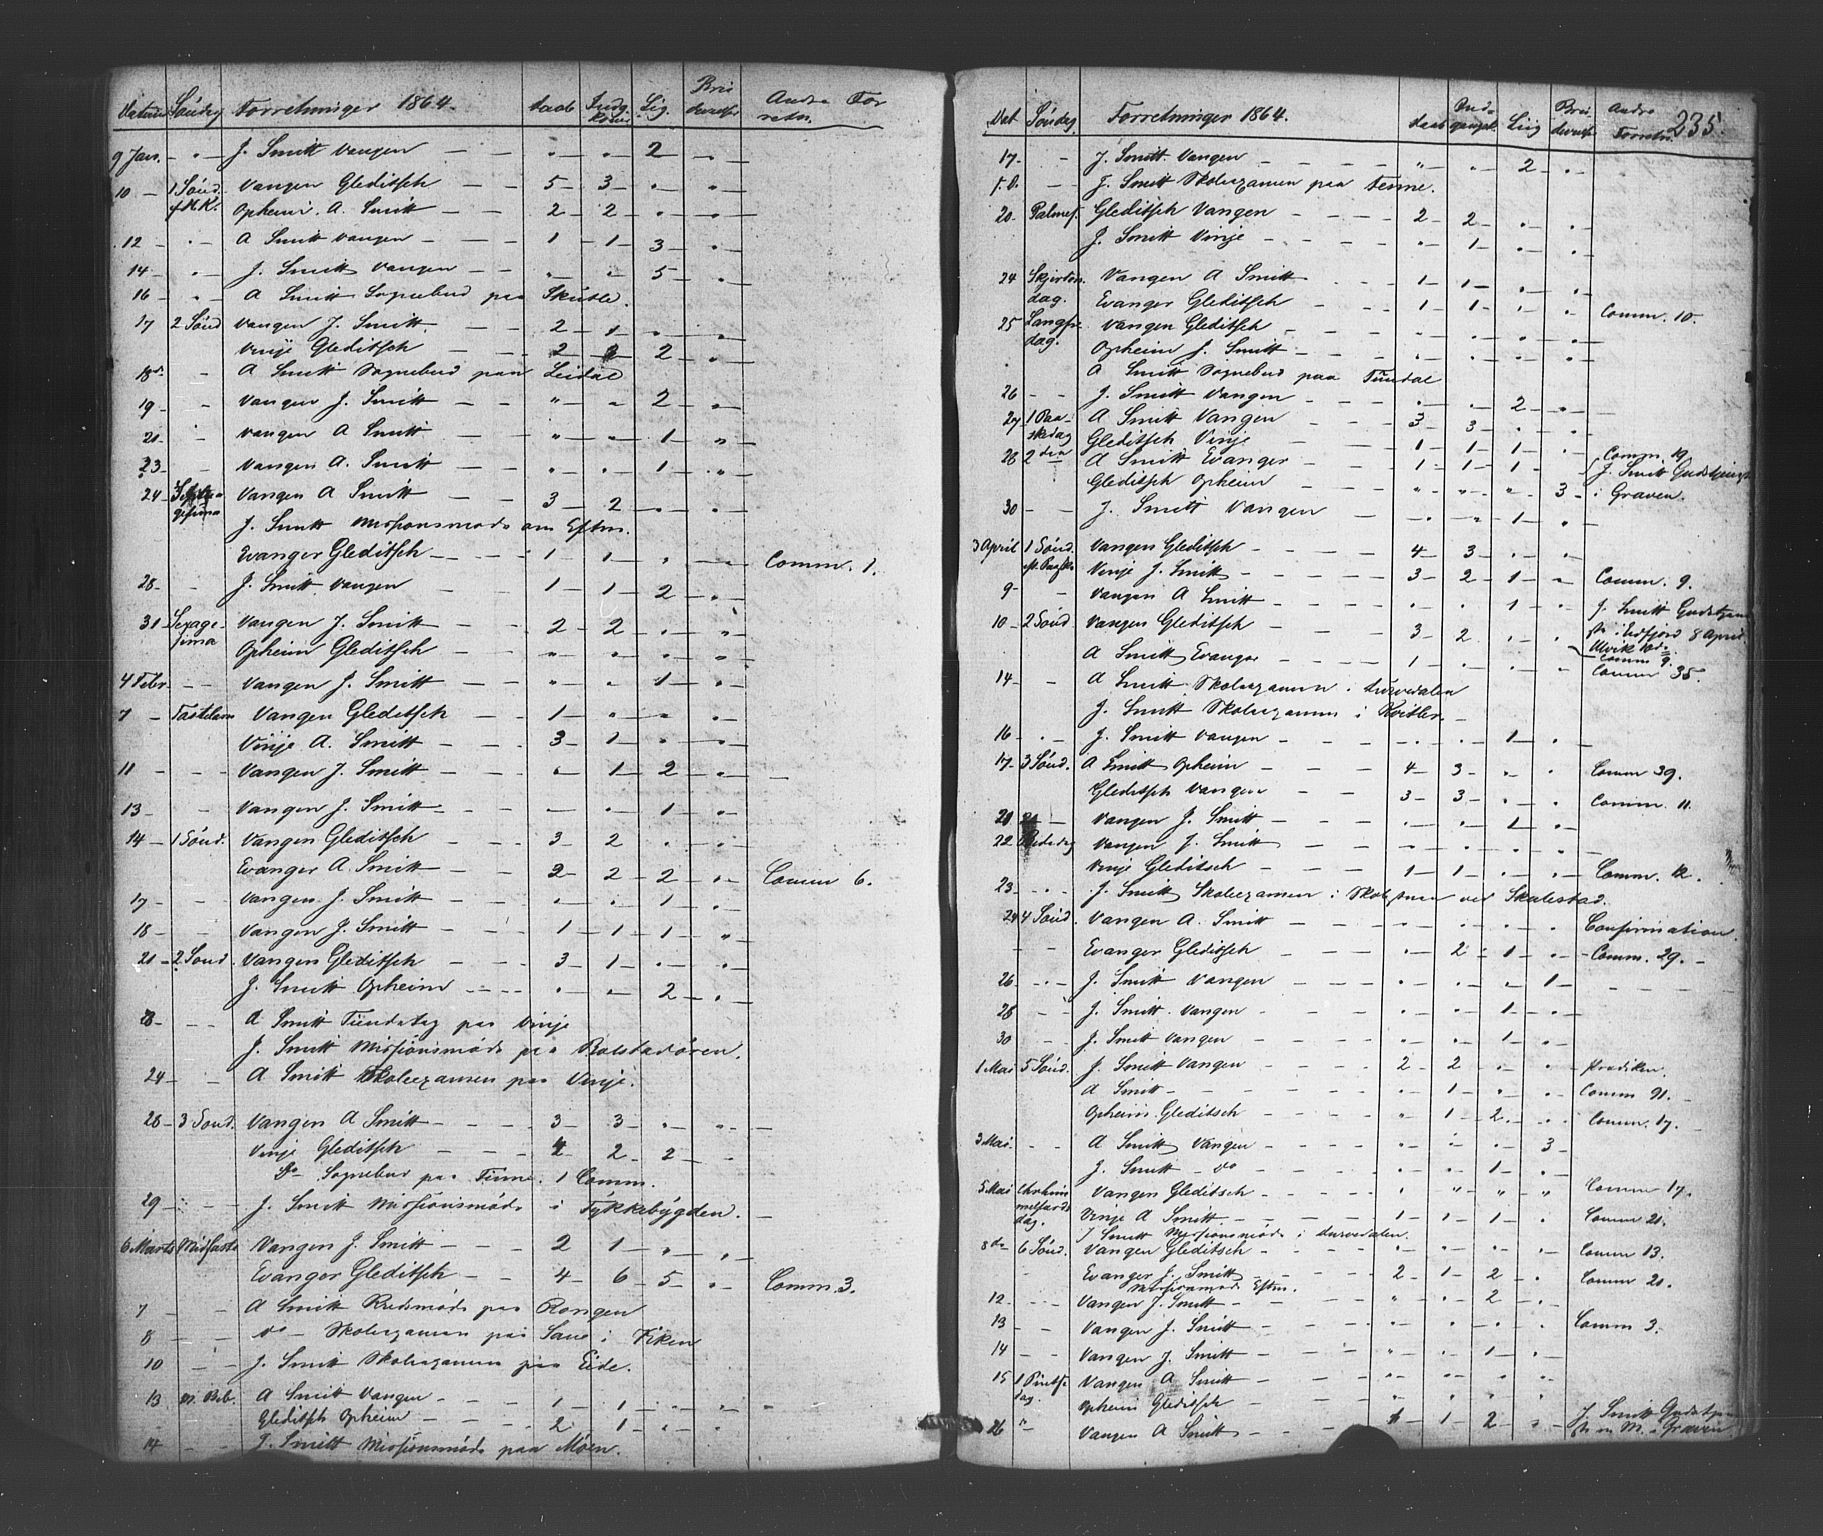 Datum Søndag Forretninger 1864. daab Indg. kone Lig. Bru devielse Andre For retn.
9 Jan. - " - J. Smitt Vangen - - " - " - 2 - " -
10 - 1 Sønd. f. H. K. Vangen Gleditsch - - 5 - 3 - " - " -
Opheim. A. Smitt - - 2 - 2 - " - " -
12 " - A Smitt Vangen - - 1 - 1 - 3 - " -
14 - " - J. Smitt Vangen - - " - " - 5 - " -
16 " - A Smitt Sognebud paa Skutle.
17 2 Sønd Vangen J. Smitt. - - 2 - 1 - " - " -
Vinje Gleditsch - - 2 - 2 - 2 - " -
18 d. - A Smitt Sognebud paa Leidal
19 - Vangen J. Smitt - - " - " - 2 - " -
21. - Vangen A Smitt - - " - " - 1 - " -
23 - - Vangen A. Smitt - - " - " - 1 - " -
24 - Septua gesima Vangen A Smitt - - 3 - 2 - " - " -
J. Smitt Missionsmøde om Eftm.
Evanger Gleditsch - - 1 - 1 - " - - Comm. 1.
28 - - J. Smitt Vangen - 1 - 1 - 2 - " -
31 - Sexage- sima Vangen J. Smitt - - 2 - 2 - " - " -
Opheim Gleditsch - - " - " - " - " -
4 Febr - - Vangen J. Smitt - - " - " - 1 - " -
7 - Fastelavn Vangen Gleditsch - - 1 - " - " - " -
Vinje A. Smitt - - 3 - 1 - " - " -
11 - - - Vangen J. Smitt - - " - 1 - 2 - " -
13 - - Vangen J. Smitt - - - " - 1 - " -
14 - 1 Sønd. Vangen Gleditsch - - 3 - 2 " - "
Evanger A. Smitt - - 2 - 2 - 2 - " - Comm 6.
17 - - Vangen J. Smitt - - " - " - 1 - " -
18 - Vangen J. Smitt - - 1 - 1 - 1 - " -
21 - 2 Sønd. Vangen Gleditsch - - 3 - 1 - " - " -
J. Smitt Opheim - - - " - " - 2 - " -
23 - - - A Smitt Tiendetag paa Vinje
J. Smitt Missionsmøde paa Bolstadøren.
24 - - - A Smitt Skoleexamen paa Vinje.
28 - 3 Sønd. Vangen A Smitt - - - 3 - 3 - " - " -
Vinje Gleditsch - - - 4 - 2 - 2 - "
do Sognebud paa Finne. 1 Comm.
29 - - - J. Smitt Missionsmøde i Tykkebygden. -
6 Marts Midfaste Vangen J. Smitt - - - 2 - 1 - " - " -
Evanger Gleditsch - - 4 - 6 - 5 - " - Comm. 3.
7 - - A Smitt Redsmøde paa Rongen
8 - - do - Skoleexamen paa Saue i Fiken
10 - - J. Smitt Skoleexamen paa Eide.
13 M. Beb. A Smitt Vangen - - 1 - 1 - " - " - "
Gleditsch Opheim - - - 2 - 1 - " - "
14 - - J. Smitt Missionsmøde paa Møen.
235.
Dat Søndag Forretninger 1864. daab Ind gangsk. Liig Bru devielse Andre Forretn.
17. - J. Smitt Vangen - - - " - " - 2 - " -
- - J. Smitt Skoleexamen paa Tesme.
20 Palmes. Gleditsch Vangen - - - - 2 - 2 - " - " -
J. Smitt Vinje - - - - " - 1 - " - " -
24 Skjertors dag. Vangen A Smitt - - - 1 - 1 - " - " -
Evanger Gleditsch - - 1 - 1 - " - " - Comm. 10.
25 Langfre dag. Vangen Gleditsch - - - " - " - " - " -
Opheim J. Smitt - - - " - " - " - " -
A Smitt Sognebud paa Tündal
26 - - J. Smitt Vangen - - - " - " - 2 - " -
27 1 Paa- skedag A Smitt Vangen - - - 3 - 3 - " - " -
Gleditsch Vinje - - 1 - 1 - 1 - " - Comm. 19
28 2 den A Smitt Evanger - - - 1 - 1 - 1 - J. Smitt Gudstjeneste
Gleditsch Opheim - - " - " - " - 3 - i Graven.
30 - - J. Smitt Vangen - - " - " - 1 - "
3 April 1 Sønd. eft. Paaske Vangen Gleditsch - - - - 4 - 3 - " - " -
Vinje J. Smitt - - - - 3 - 2 - 1 - " - Comm. 9.
9 - - Vangen A Smitt - - - " - " - 1 - " J. Smitt Gudstjene
10 - 2 Sønd Vangen Gleditsch - - - 3 - 2 - " - " ste i Eidfjord 8 April
Ulvik 10 d.
A Smitt Evanger - - 1 - " - " - " Comm 9.
14 - - A Smitt Skoleexamen i Dürvedalen Comm 35.
J. Smitt Skoleexamen i Kvitlen -
16 - " - J. Smitt Vangen - - - " - " - 1 - " -
17 - 3 Sønd. A Smitt Opheim - - - 4 - 3 - " - " Comm 39.
Gleditsch Vangen - - 3 - 3 - " - " Comm. 11.
20. - Vangen J. Smitt - - - " - " - 1 - " -
22 Bededag Vangen J. Smitt - - - " - " - " - " -
Vinje Gleditsch - - - 1 - 1 - " - " - Comm. 12.
23 - " - J. Smitt Skoleexamen i ved Skalestad.
24 4 Sønd. Vangen A. Smitt - - - " - " - " - " Confirmation.
Evanger Gleditsch - - - " - 2 - 1 - " - Comm. 29. -
26 - " - J. Smitt Vangen - - - " - " - " - 1 -
28 - - J. Smitt. Vangen - - - " - " - 1 - "
30 - J. Smitt Vangen - - - " - " - 1 - "
1 Mai 5 Sønd. J. Smitt Vangen - - - 2 - 2 - " - " Prædiken.
A Smitt - - - - " - 1 - " - " Comm 91. -
Opheim. Gleditsch - - - " - 1 - 2. - " Comm. 17.
3 Mai. - - A Smitt Vangen - - - " - " - " - 3 -
J. Smitt - do - - - " - " - 1 - " -
5 Mai Chr. him melfarts dag. Vangen Gleditsch - - - " " - " - " Comm 17.
Vinje A Smitt - - - 1 - 1 - 1 - " Comm 21.
J Smitt Missionsmøde i Dürvedalen.
8 de 6 Sønd. Vangen Gleditsch - - - " - " - " - " Comm 13.
Evanger J. Smitt - - - 2 - 1 - 2 - " Comm 20.
Missionsmøde Eftm.
12 - - - Vangen J. Smitt - - - " - " - 2 - " -
13 - - Vangen J. Smitt - - - " - " - " - " Comm 3.
14 - - Vangen J. Smitt - - - " - " - 1 - "
15 1 Pintse dag. Vangen A Smitt - - - " - " - " - "
Opheim Gleditsch - - - " - " - " - "
26 " Vangen A Smitt - - 1 - 1 - 2 - " - J. Smitt Gudstjene
ste Graven